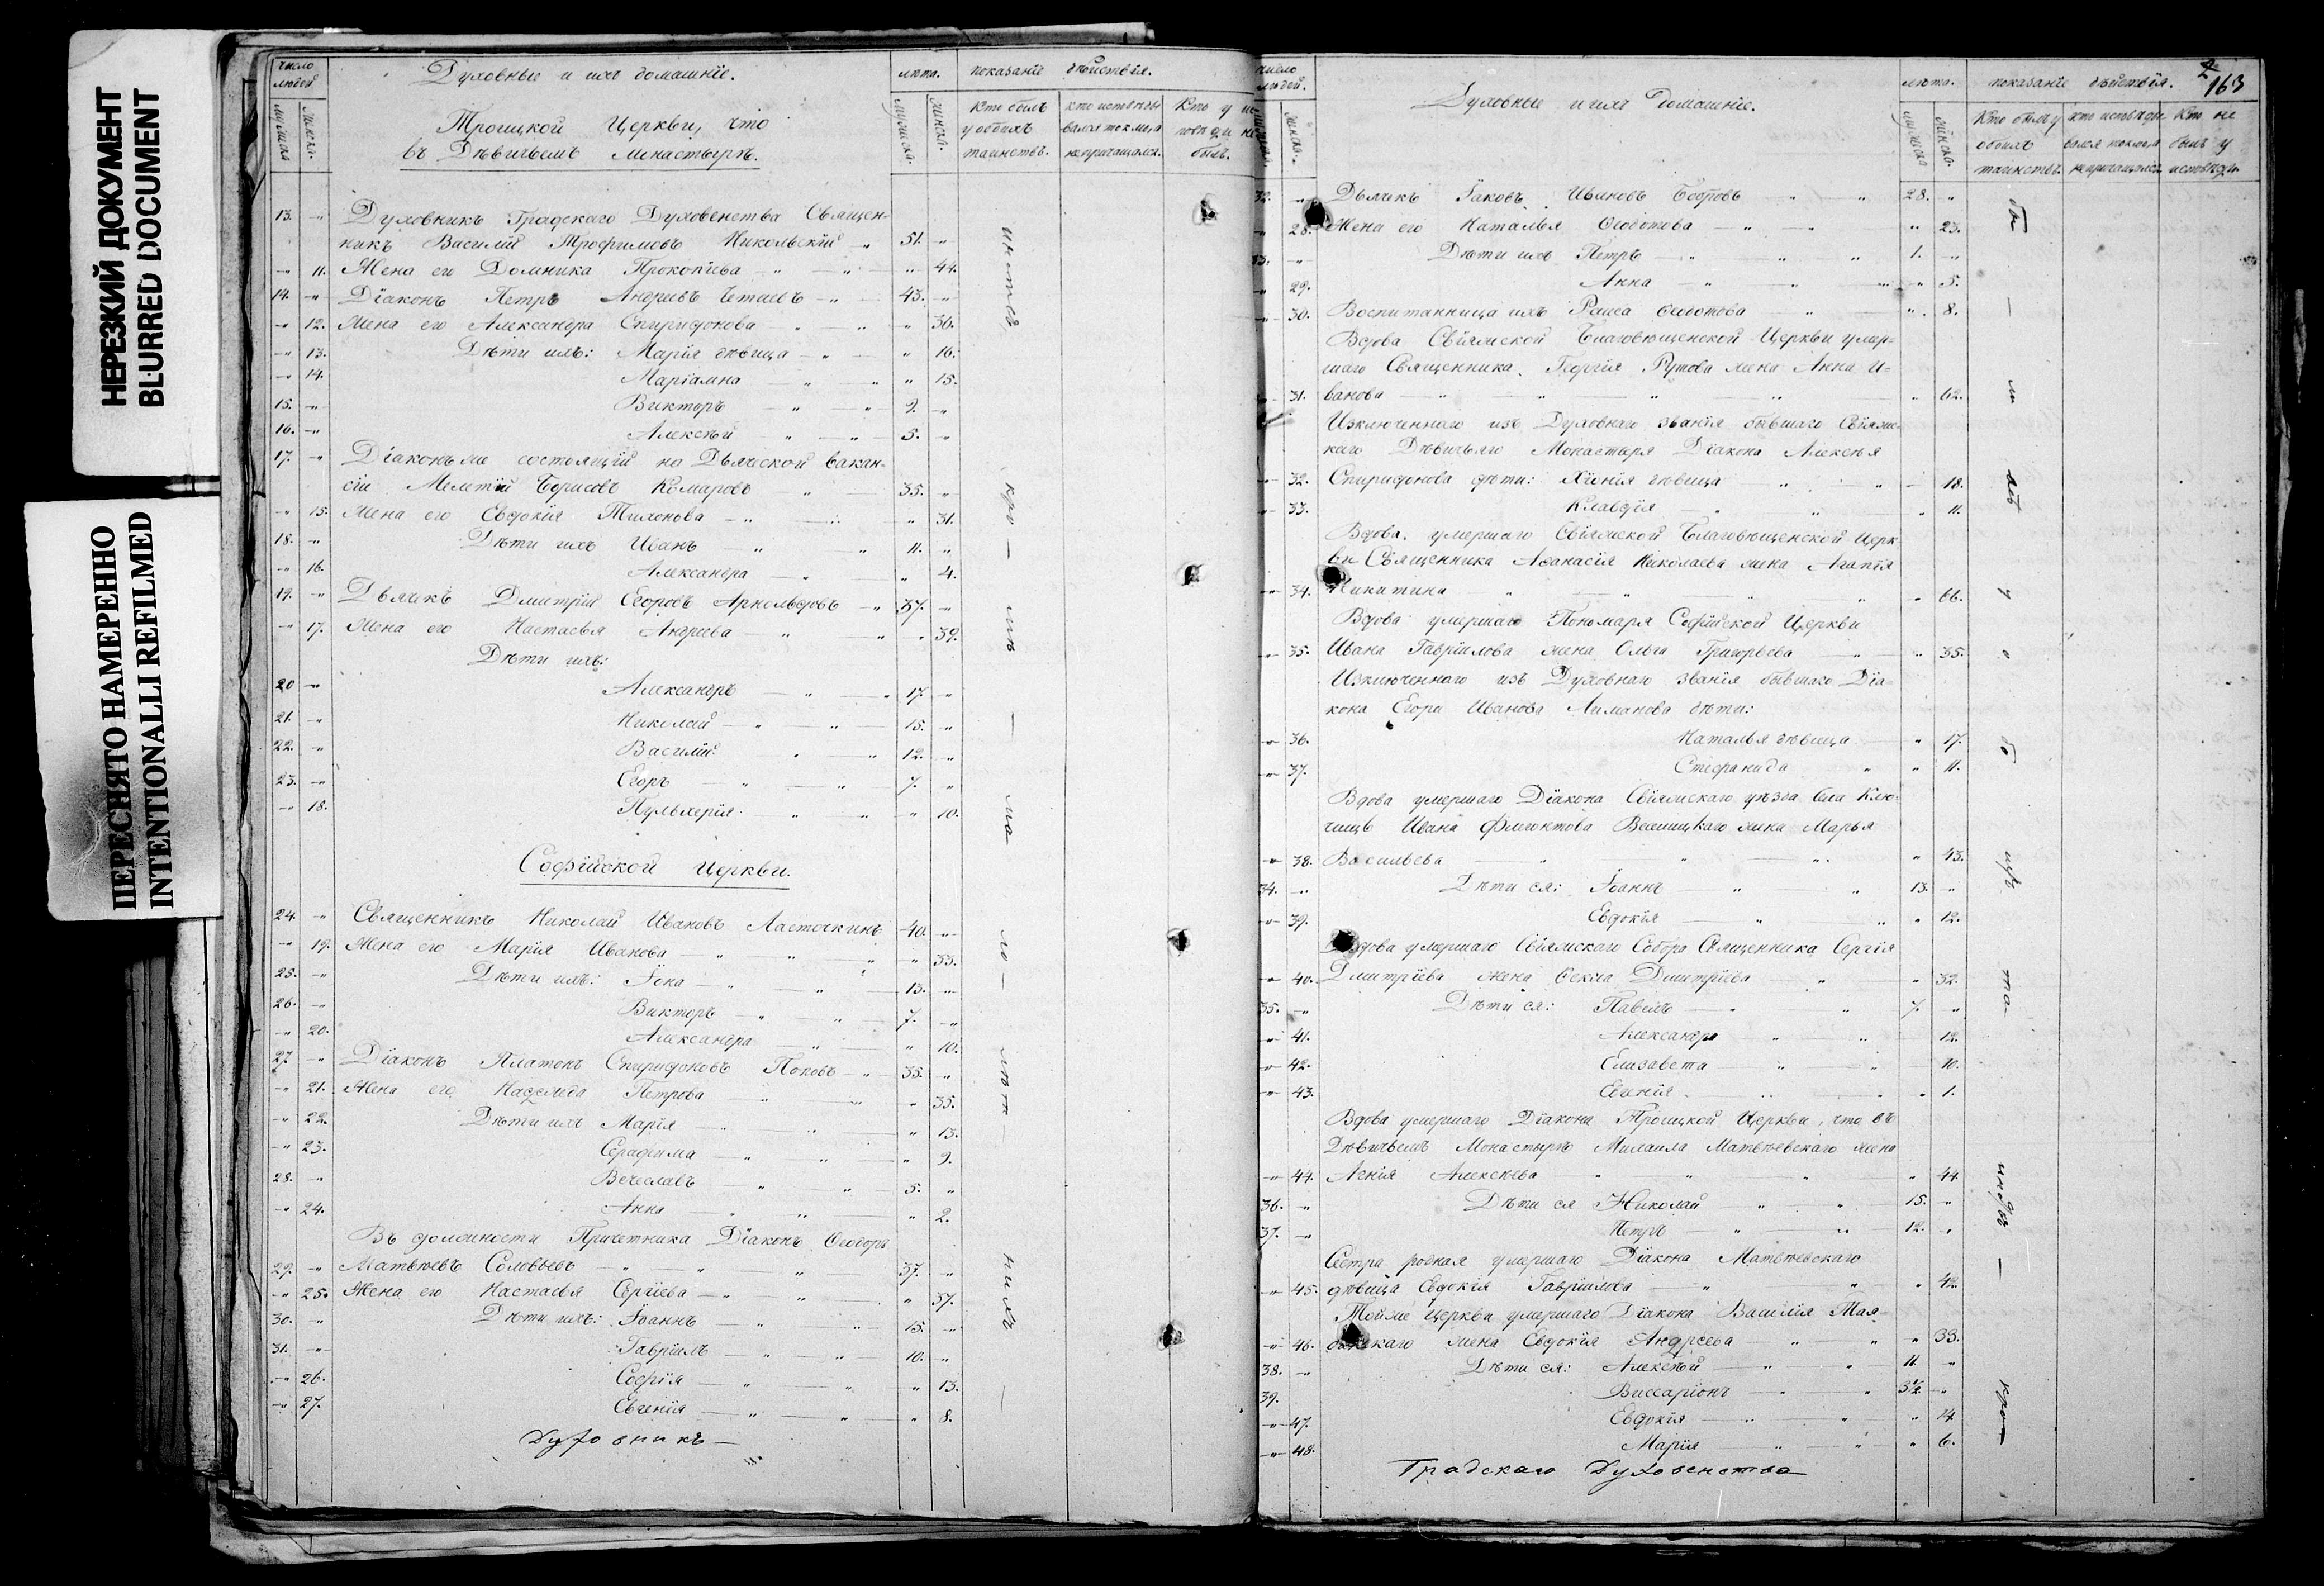 НЕРЕЗКИЙ ДОКУМЕНТ
BLURRED DOCUMENT
ПЕРЕСНЯТО НАМЕРЕННО
INTENTIONALLI REFILMED
число людей
мужеска
женска.
Духовные и ихъ домашніе.
лѣта.
мужска.
женска.
показаніе дѣйствія.
Кто былъ у обоихъ таинствъ.
кто исповѣдывался токмо, а не причащался.
Кто у исповѣди не былъ.
Троицкой Церкви, что
въ Дѣвичьемъ монастырѣ.
13. " Духовникъ Градскаго Духовенства Священ-
никъ Василій Трофимовъ Никольскій 51. "
" 11. Жена его Домника Прокопіева " 44.
14. " Діаконъ Петръ Андреевъ 43. "
" 12. Жена его Александра Спиридонова " 36.
" 13. Дѣти ихъ: Марія дѣвица " 16.
" 14. Маріамна " 15.
15. " Викторъ 9. "
16. " Алексѣй 5. "
17. " Діаконъ же состоящій на Дьяческой вакан-
сіи Мелетій Борисовъ Комаровъ 35. "
" 15. Жена его Евдокія Тихонова " 31.
18. " Дѣти ихъ Иванъ 11. "
" 16. Александра " 4.
19. " Дьячекъ Дмитрій Егоровъ Арнольдовъ 37. "
" 17. Жена его Настасья Андреева " 39.
Дѣти ихъ:
20 " Александръ 17 "
21. " Николай 15. "
22. " Василій 12. "
23. " Егоръ 7. "
" 18. Пульхерія " 10.
Софійской Церкви.
24 " Священникъ Николай Ивановъ Ласточкинъ 40. "
" 19. Жена его Марія Иванова " 33.
25. " Дѣти ихъ: Іона 13. "
26. " Викторъ 7. "
" 20. Александра " 10.
27. " Діаконъ Платонъ Спиридоновъ Поповъ 35. "
" 21. Жена его Надежда Петрова " 35.
" 22. Дѣти ихъ Марія " 13.
" 23. Серафима " 9.
28. " Вечеславъ 5. "
" 24. Анна " 2.
Въ должности Причетника Діаконъ Ѳеодоръ
29. " Матвѣевъ Соловьевъ 37. "
" 25. Жена его Настасья Сергіева " 37.
30. " Дѣти ихъ: Іоаннъ 15. "
31. " Гавріилъ 10. "
" 26. Софія " 13.
" 27. Евгенія " 8.
Духовникъ
2
163
число людей.
женска.
Духовные и ихъ домашніе.
лѣта.
мужеска
женска.
показаніе дѣйствія.
Кто былъ у обоихъ таинствъ.
кто исповѣдывался токмо, а не причащался.
Кто не былъ у исповѣди.
32. " Дьячекъ Іаковъ Ивановъ Бобровъ 28. "
" 28. Жена его Наталья Ѳеодотова " 23.
33. " Дѣти ихъ Петръ 1. "
" 29. Анна " 5.
" 30. Воспитанница ихъ Раиса Ѳеодотова " 8.
Вдова Свіяжской Благовѣщенской Церкви умер-
шаго Священника Георгія Рутова жена Анна И-
" 31. ванова " 62.
Изключеннаго изъ Духовнаго званія бывшаго Свіяжс-
каго Дѣвичьяго Монастыря Діакона Алексѣя
" 32. Спиридонова дѣти: Хіонія дѣвица " 18.
" 33. Клавдія " 11.
Вдова умершаго Свіяжской Благовѣщенской Церк-
ви Священника Аѳанасія Николаева жена Агапія
" 34. Никитина " 66.
Вдова умершаго Пономаря Софійской Церкви
" 35. Ивана Гавріилова жена Ольга Григорьева " 35.
Изключеннаго изъ Духовнаго званія бывшаго Діа-
кона Егора Иванова Лиманова дѣти:
" 36. Наталья дѣвица " 17.
" 37. Стефанида " 11.
Вдова умершаго Діакона Свіяжскаго уѣзда Села Клю-
чищъ Ивана жена Марья
" 38. Васильева " 43.
34. " Дѣти ея: Іоаннъ 13. "
" 39. Евдокія " 12.
Вдова умершаго Свіяжскаго Собора Священника Сергія
" 40. Дмитріева жена Ѳекла Дмитріева " 32.
35. " Дѣти ея: Павелъ 7. "
" 41. Александра 12.
" 42. Елизавета 10.
" 43. Евгенія " 1.
Вдова умершаго Діакона Троицкой Церкви, что въ
Дѣвичьемъ Монастырѣ Михаила Матвѣевскаго жена
" 44. Агнія Алексѣева " 44.
36. " Дѣти ея Николай 15. "
37. " Петръ 12. "
Сестра родная умершаго Діакона Матвѣевскаго
" 45. дѣвица Евдокія Гавриилова " 42.
Той же Церкви умершаго Діакона Василія
" 46. жена Евдокія Андреева " 33.
38. " Дѣти ея: Алексѣй 11. "
39. Виссаріонъ 3½. "
" 47. Евдокія " 14
" 48. Марія " 6.
Градскаго Духовенства